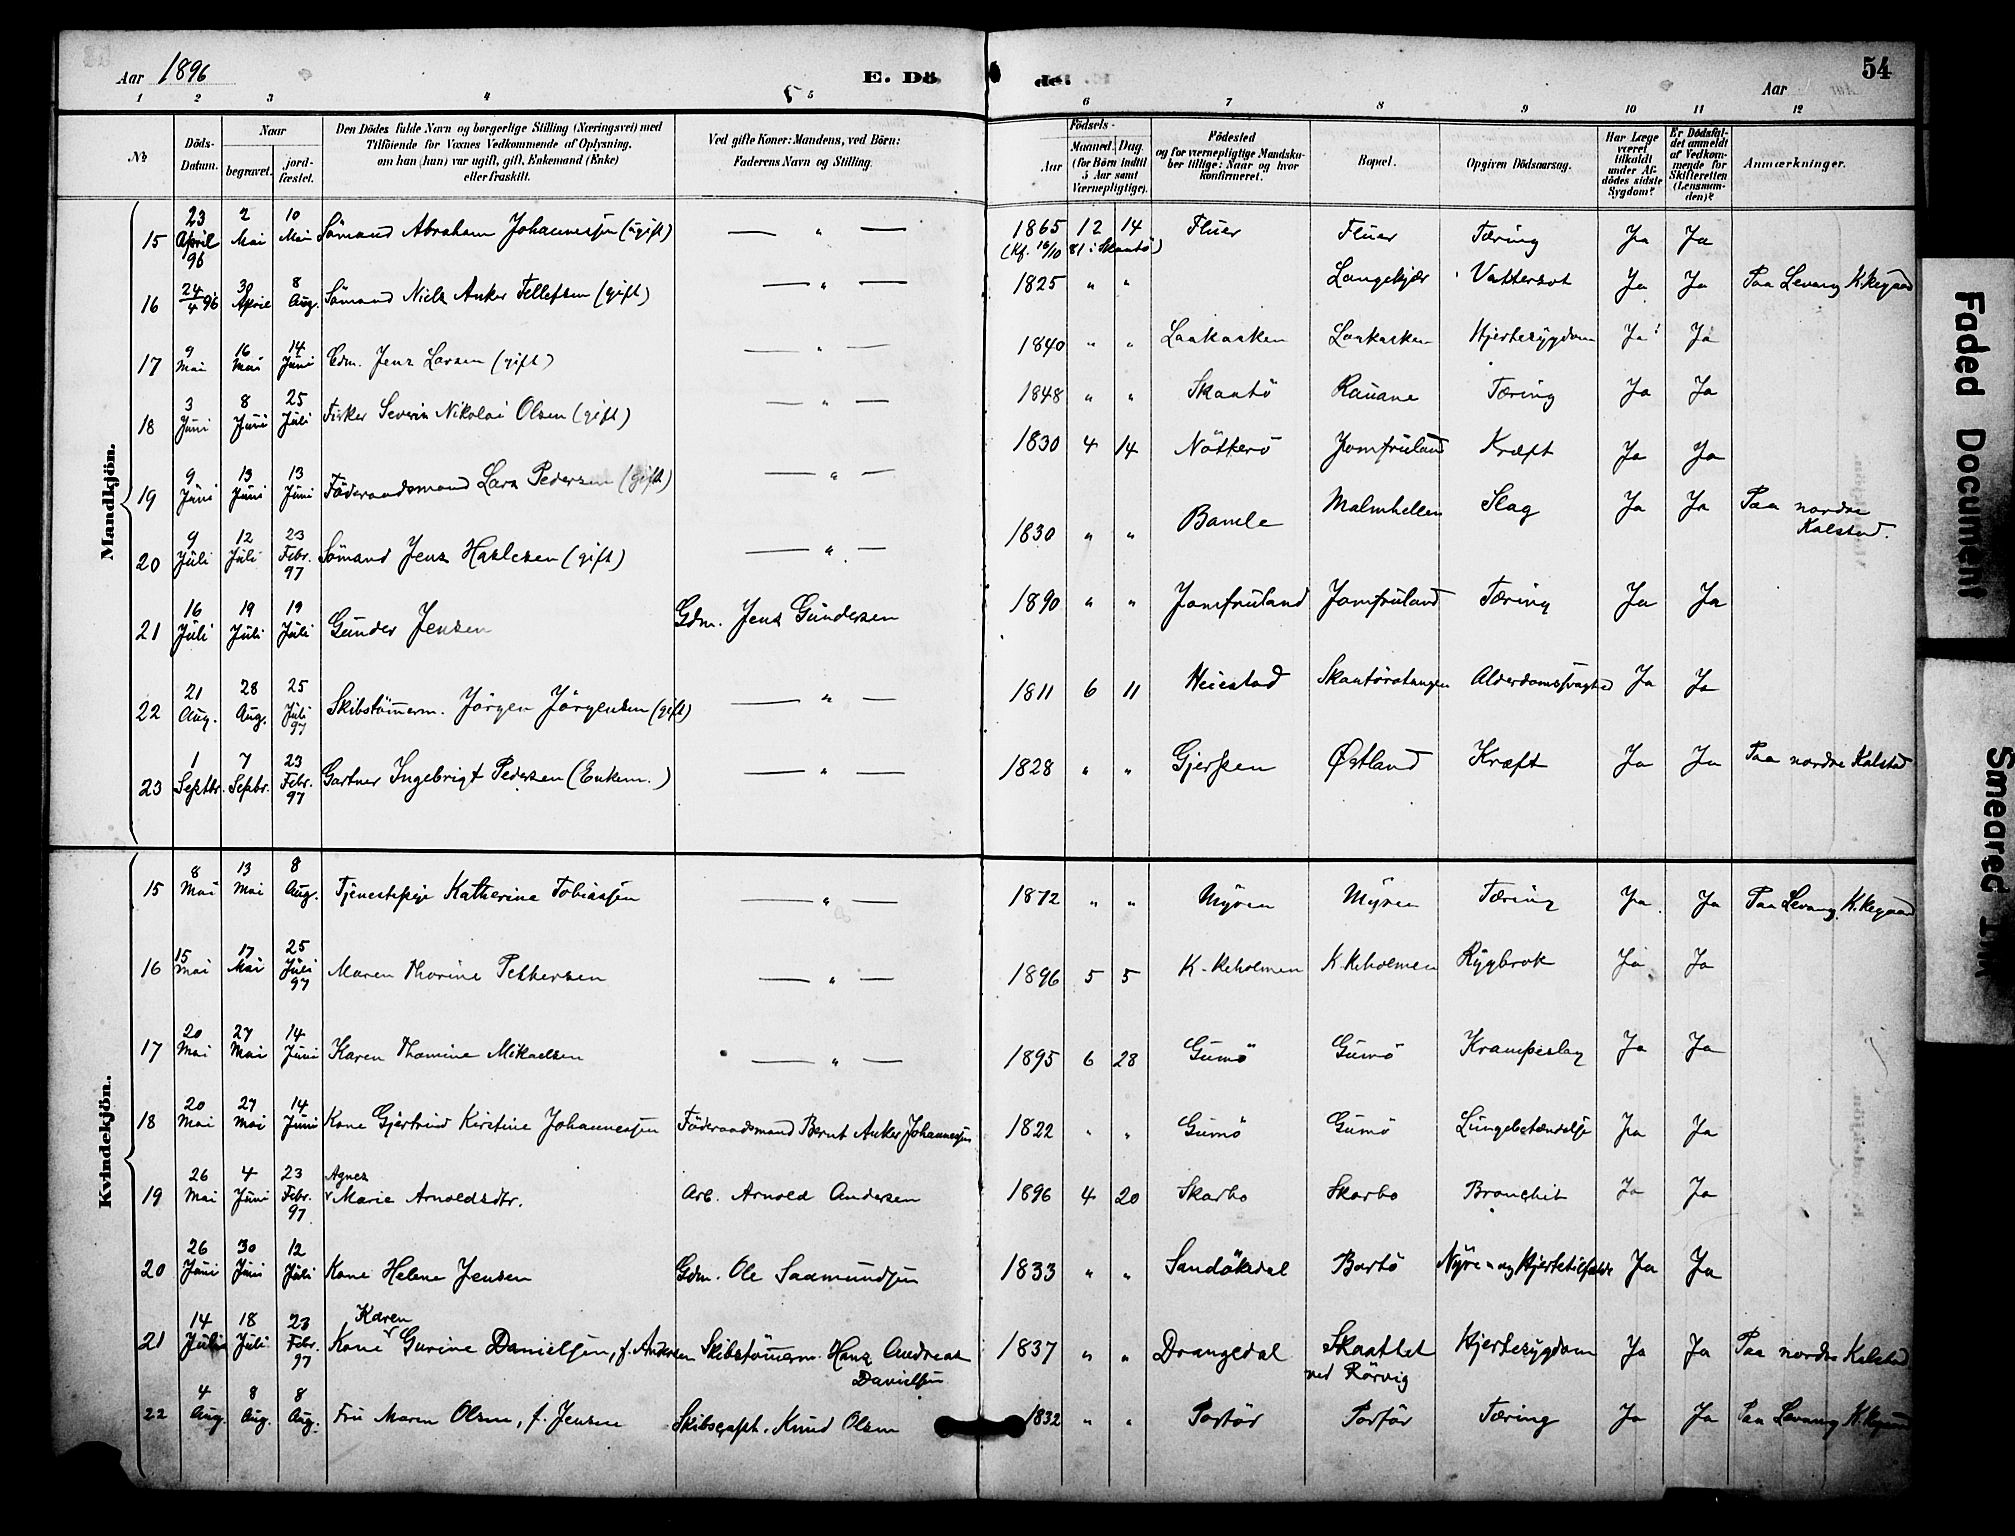 Aar 1896
E. Döde.
Aar
54
1 2 3 4 5 6 7 8 9 10 11 12
No
Döds-Datum.
Naar
begravet. jordfæstet.
Den Dödes fulde Navn og borgerlige Stilling (Næringsvei) med
Tilföiende for Voxnes Vedkommende af Oplysning,
om han (hun) var ugift, gift, Enkemand (Enke)
eller fraskilt.
Ved gifte Koner: Mandens, ved Börn:
Faderens Navn og Stilling.
Födsels-
Aar
Maaned. Dag.
(for Börn indtil
5 Aar samt
Værnepligtige).
Födested
og for værnepligtige Mandskaber tillige: Naar og hvor
konfirmeret.
Bopæl.
Opgiven Dödsaarsag.
Har Læge
været
tilkaldt
under Afdödes sidste
Sygdom?
Er Dödsfaldet anmeldt
af Vedkommende for
Skifteretten
(Lensmanden)?
Anmærkninger.
Mandkjön.
15 23 April 96 2 Mai 10 Mai Sömand Abraham Johannessen (ugift) — " — 1865 12 14 Fluer Fluer Tæring Ja Ja
(Kf. 16/10 81 i Skaatö)
16 24/4 96 30 April 8 Aug. Sömand Niels Anker Tellefsen (gift) — " — 1825 " " Langekjær Vattersot Ja Ja Paa Levang K.kegaard
17 9 Mai 16 Mai 14 Juni Gdm. Jens Larsen (gift) — " — 1840 " " Laukasken Laukasken Hjertesygdom Ja Ja
18 3 Juni 8 Juni 25 Juli Fisker Severin Nikolai Olsen (gift) — " — 1848 " " Skaatö Rauane Tæring Ja Ja
19 9 Juni 13 Juni 13 Juni Föderaadsmand Lars Pedersen (gift) — " — 1830 4 14 Nötterö Jomfruland Kræft Ja Ja
20 9 Juli 12 Juli 23 Febr. 97 Sömand Jens Harlesen (gift) — " — 1830 " " Bamle Malmhellen Slag Ja Ja Paa nordre Kalstad.
21 16 Juli 19 Juli 19 Juli Gunder Jensen Gdm. Jens Gundersen 1890 " " Jomfruland Jomfruland Tæring Ja Ja
22 21 Aug. 28 Aug. 25 Juli 97 Skibstömerm. Jörgen Jörgensen (gift) — " — 1811 6 11 Heiestad Skaatöratangen Alderdomssvaghed Ja Ja
23 1 Septbr. 7 Septbr. 23 Febr. 97 Gartner Ingebrigt Pedersen (Enkem.) — " — 1828 " " Gjerpen Østland Kræft Ja Ja Paa nordre Kalstad
Kvindekjön.
15 8 Mai 13 Mai 8 Aug. Tjenestepige Katherine Tobiassen — " — 1872 " " Myren Myren Tæring Ja Ja Paa Levang K.kegaard
16 15 Mai 17 Mai 25 Juli 97 Maren Thorine Pettersen — " — 1896 5 5 K.keholmen K.keholmen Rygbrok Ja Ja
17 20 Mai 27 Mai 14 Juni Karen Thomine Mikaelsen — " — 1895 6 28 Gumö Gumö Krampeslag Ja Ja
18 20 Mai 27 Mai 14 Juni Kone Gjertrud Kirstine Johannessen Föderaadsmand Bernt Anker Johannessen 1822 " " Gumö Gumö Lungebetændelse Ja Ja
19 26 Mai 4 Juni 23 Febr. 97 Agnes Marie Arnoldsdtr. Arb. Arnold Andersen 1896 4 20 Skarbo Skarbo Bronchit Ja Ja
20 26 Juni 30 Juni 12 Juli Kone Helene Jensen Gdm. Ole Saamundsen 1833 " " Sandökedal Bartö Nyre- og Hjertetilfælde Ja Ja
21 14 Juli 18 Juli 23 Febr. 97 Kone Karen Gurine Danielsen, f. Andersen Skibstömerm. Hans Andreas Danielsen 1837 " " Drangedal Skaattet ved Rörvig Hjertesygdom Ja Ja Paa nordre Kalstad
22 4 Aug. 8 Aug. 8 Aug. Fru Maren Olsen, f. Jensen Skibscapt. Knud Olsen 1832 " " Portör Portör Tæring Ja Ja Paa Levang K.kegaard
Faded Document
Smeared Ink